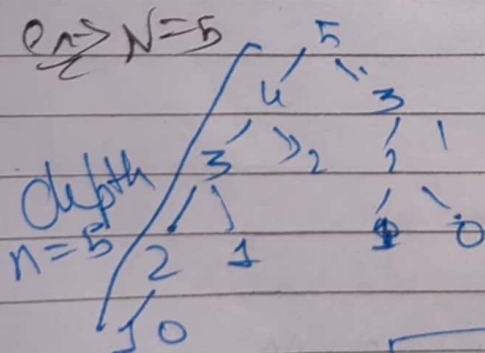 en-> N=5
5
4 3
3 2 2 1
depth
n=5
2 1 1 0
1 0